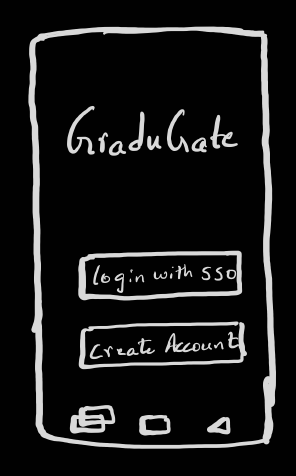 GraduGate
login with SSO
Create Account